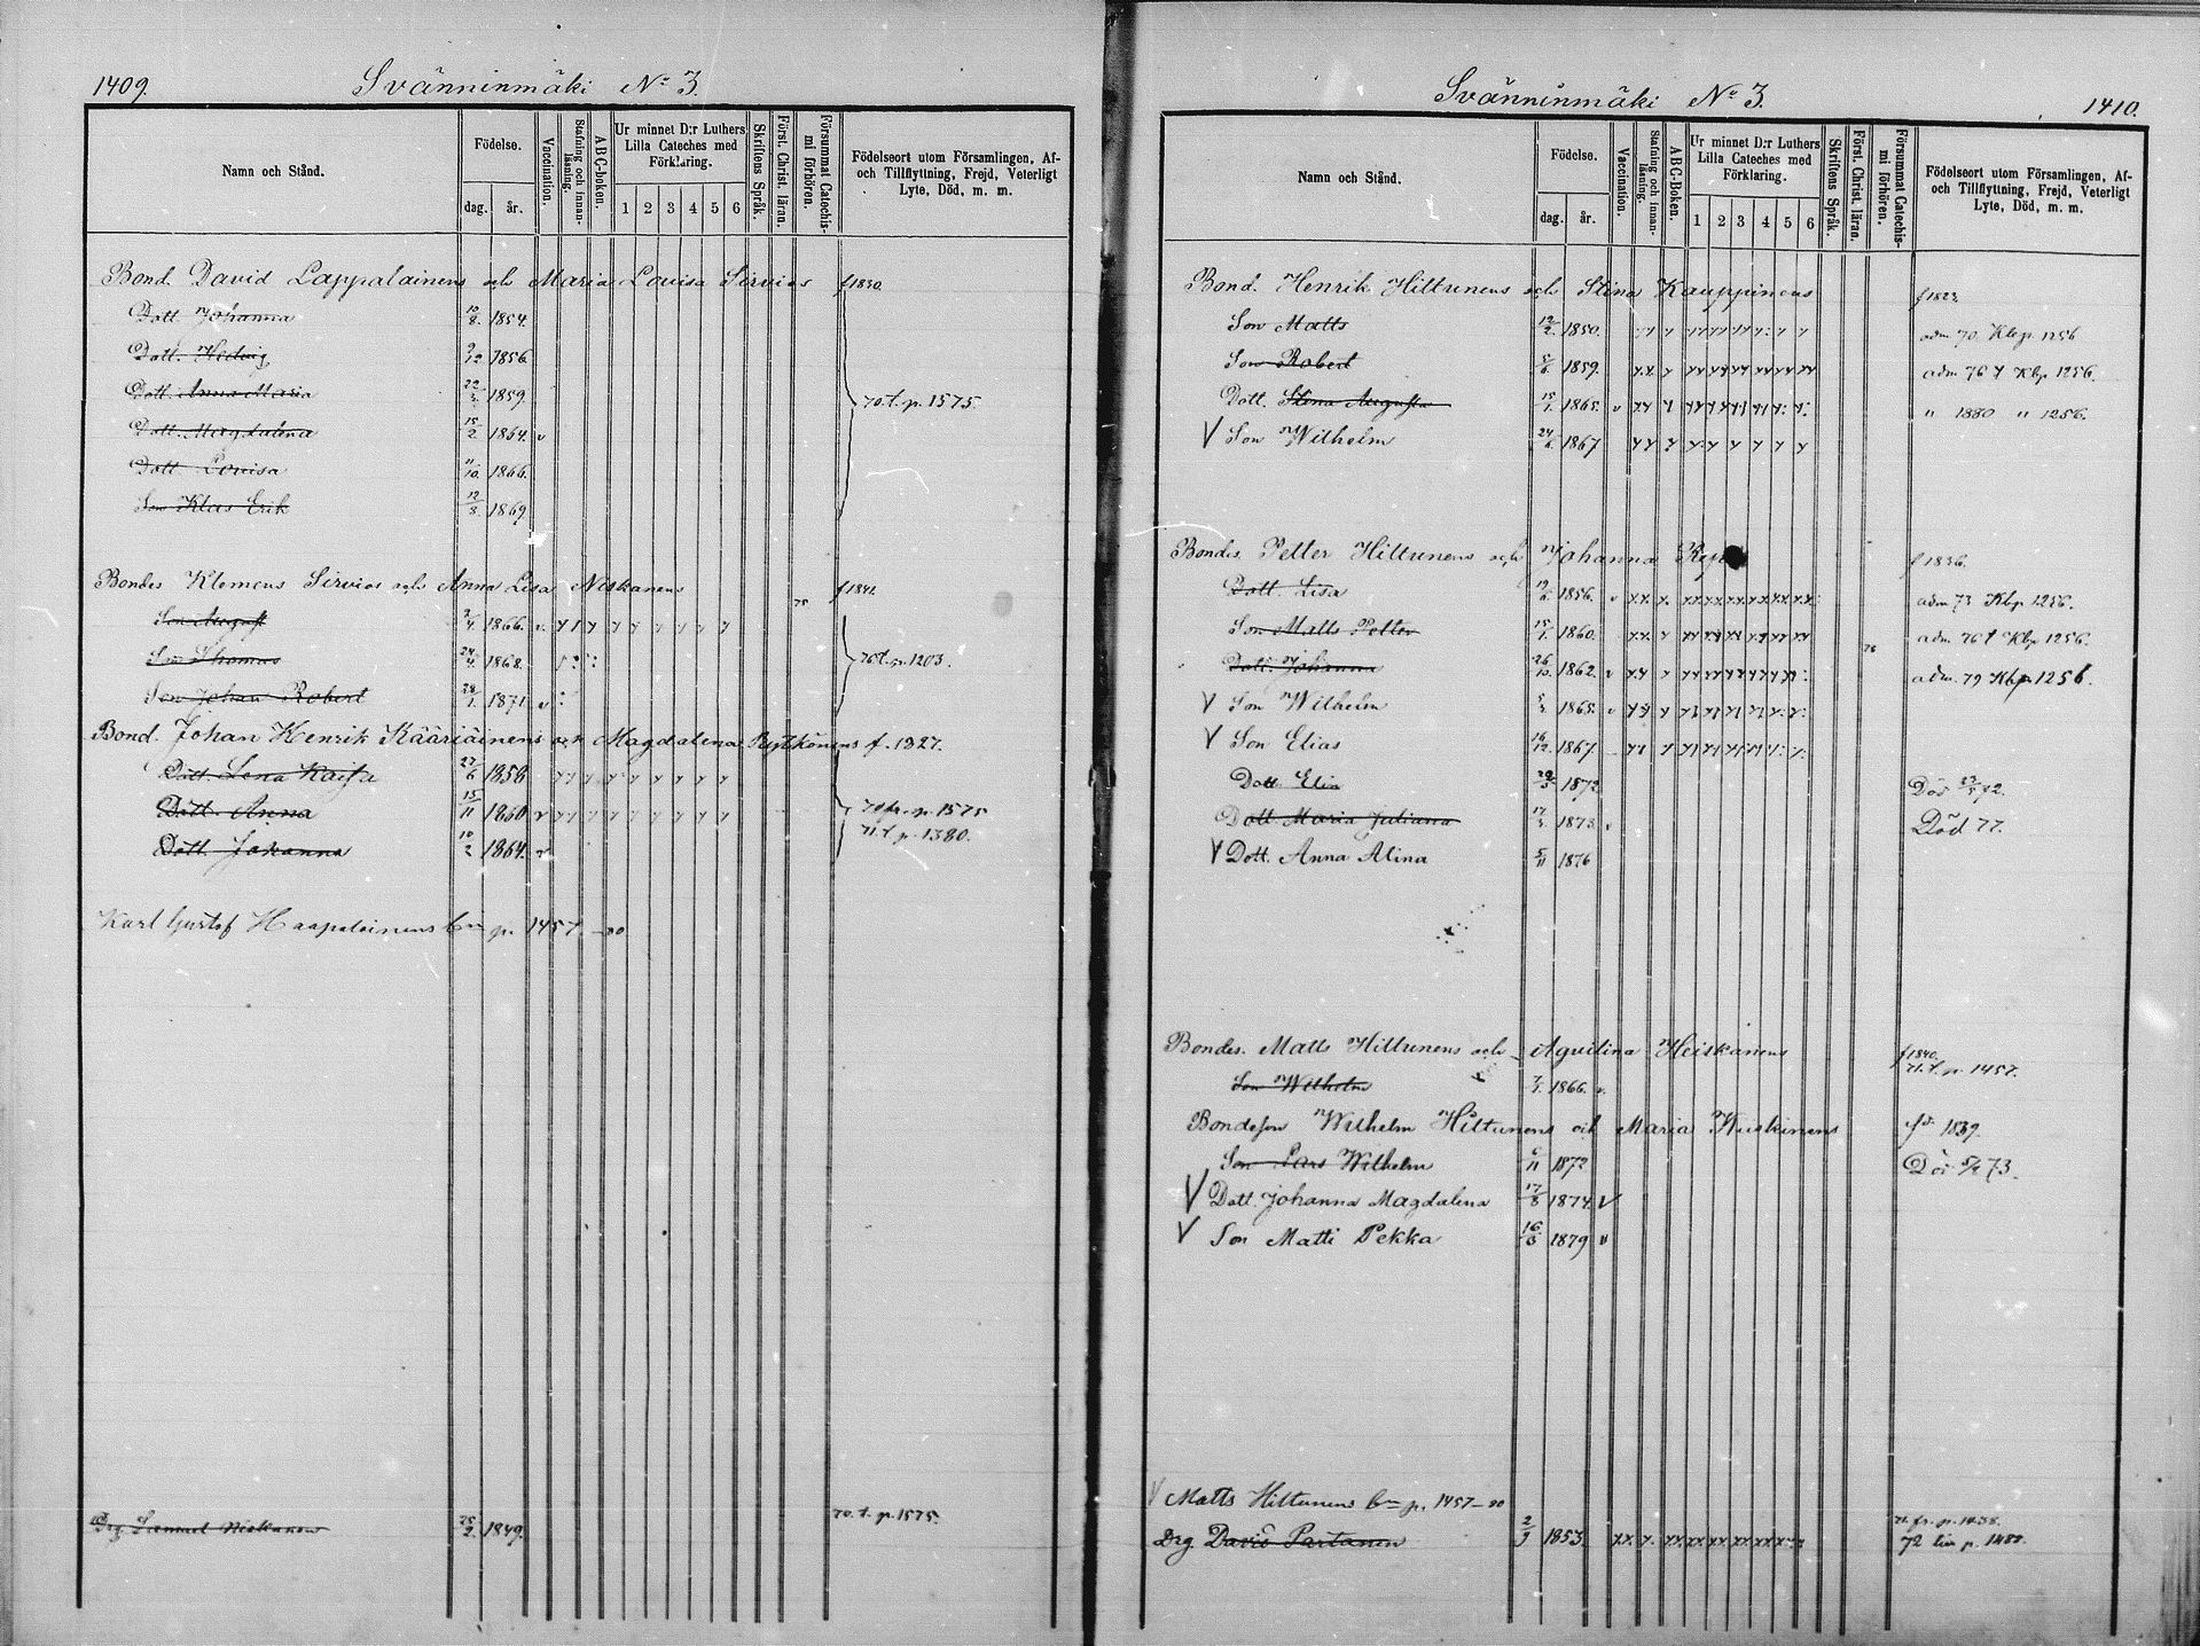 1409.
Svänninmäki No 3.
Namn och Stånd.
Födelse.
dag.
år.
Vaccination.
Stafning och innan-läsning.
ABC-boken.
Ur minnet D:r Luthers Lilla Cateches med Förklaring.
1 2 3 4 5 6
Skriftens Språk.
Först. Christ. läran.
Försummat Catechis-mi förhören.
Födelseort utom Församlingen, Af- och Tillflyttning, Frejd, Veterligt Lyte, Död, m. m.
Bond. David Lappalainens och Maria Lovisa Sirvios f 1830.
Dott. Johanna 10/8. 1854.
Dott. Hedvig 9/12 1856.
Dott. Anna Maria 22/3. 1859. 70. t. p. 1575.
Dott. Magdalena 15/2 1864. v
Dott Lovisa 11/10. 1866.
Son Klas Erik 12/3. 1869
Bondes Klemens Sirvios och Anna Lisa Niskanens f 1841.
75
Son August 2/4. 1866. v.
Son Thomas 24/4. 1868. 76 t. p. 1203.
Son Johan Robert 28/1. 1871 v
Bond. Johan Henrik Kääriäinens och Magdalena Rytkönens f. 1827.
Dott. Lena Kaisa 27/6 1856
Dott. Anna 15/11 1860 v 70 fr. p. 1575
71 t p. 1380.
Dott. Johanna 10/2 1864. v
Karl Gustaf Haapalainens bm p. 1457. -80
Drg. Samuel Niskanen 25/2. 1849. 70. t. p. 1575.
Svänninmäki No 3.
1410.
Namn och Stånd.
Födelse.
dag.
år.
Vaccination.
Stafning och innan-läsning.
ABC-Boken.
Ur minnet D:r Luthers Lilla Cateches med Förklaring.
1 2 3 4 5 6
Skriftens Språk.
Först. Christ. läran.
Försummat Catechis-mi förhören.
Födelseort utom Församlingen, Af- och Tillflyttning, Frejd, Veterligt Lyte, Död, m. m.
Bond. Henrik Hiltunens och Stina Kauppinens f 1823
Son Matts 12/2. 1850. adm 70. Kbp. 1256
Son Robert 1859. adm 76 t Kbp 1256.
Dott. Stina Augusta 15/1. 1865. v " 1880 " 1256.
V Son Wilhelm 24/6. 1867
Bondes. Petter Hiltunens och Johanna f 1836.
Dott. Lisa 19/6. 1856. v adm 73 Kbp 1256.
Son Matts Petter 15/1. 1860. adm. 76 t Kbp 1256.
76
Dott. Johanna 26/10. 1862. v adm. 79 Kbp 1256.
V Son Wilhelm 1865. v
V Son Elias 16/12. 1867
Dott Elin 1872 Död 23/5 72.
Dott Maria Juliana 17/3. 1873. v Död 77.
V Dott. Anna Alina 5/11 1876
Bondes. Matts Hiltunens och Aqvilina Heiskanens f 1840.
71. t. p. 1457.
Son Wilhelm 1866. v.
Bondeson Wilhelm Hiltunens och Maria Kuskinens fd 1839.
Son Lars Wilhelm 6/11 1872 Död 73.
V Dott. Johanna Magdalena 17/8 1874. V
V Son Matti Pekka 1879 v
V Matts Hiltunens bm p. 1457-80
71 fr. p. 1438.
Drg David Partanen 2/9 1853. 72 till p. 1488.